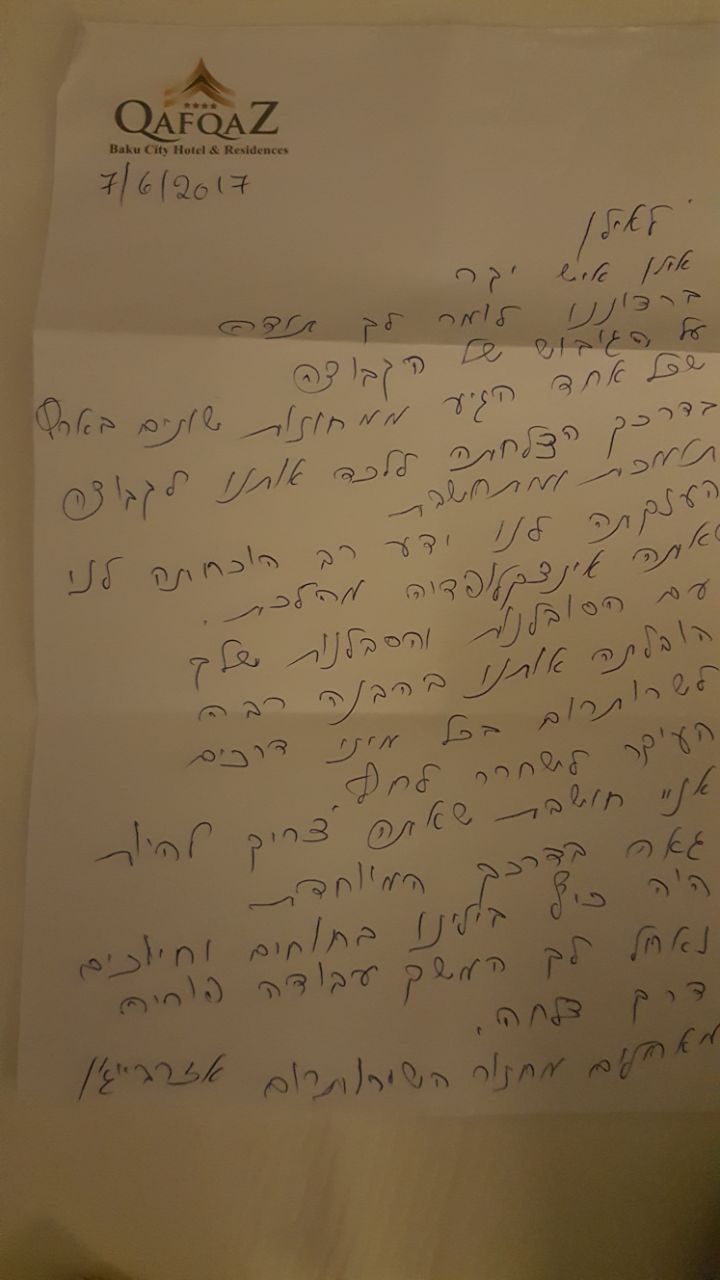 QAFQAZ
Baku City Hotel & Residences
7/6/2017
לאילן
אילן איש יקר
ברצוננו לומר לך תודה
על הגיבוש של הקבוצה
שכל אחד הגיע ממחוזות שונים בארץ
בדרכך הצלחתה ללכד אותנו לקבוצה
תומכת ומתחשבת
העלקתה לנו ידע רב הוכחתה לנו
אתה אינצקלופדיה מהלכת.
עם הסובלנות והסבלנות שלך
הובלתה אותנו בהבנה רבה
לשרותרום בכל מיני דרכים
העיקר לשחרר לחץ
אניי חושבת שאתה צריך להיות
גאה בדרכך המיוחדת
היה כיף בילינו בחוחים וחיוכים
נאחל לך המשק עבודה פוריה
דרך צלחה.
מאחלים מחזור השירותרום אזרבייג'ן